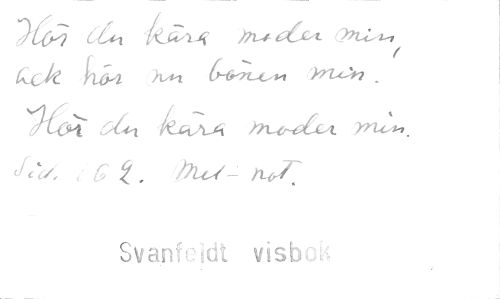 Hör du kära moder min,
ack hör nu bönen min.
Hör du kära moder min.
Sid. 162. Mel-not.
Svanfeldt visbok